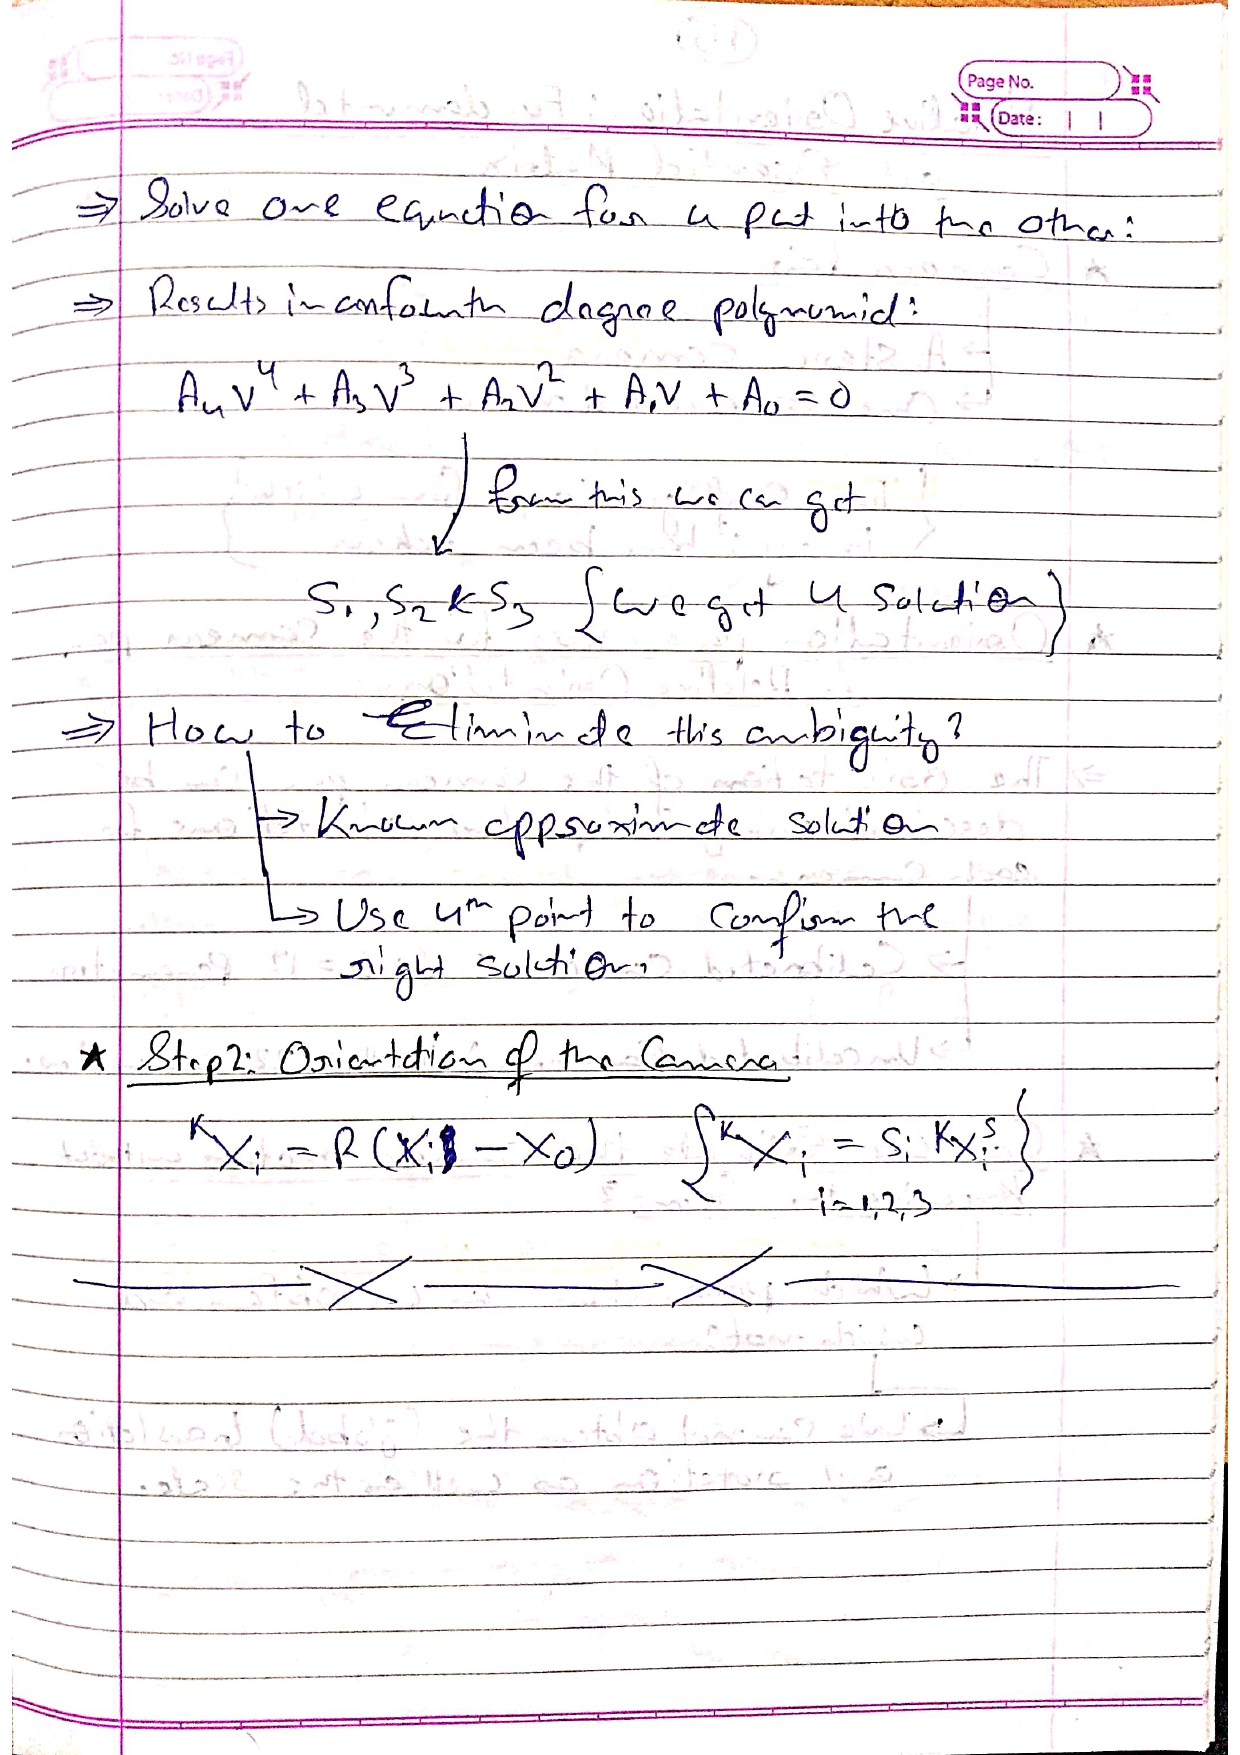 Page No.
Date:
⇒ Solve one equation for u put into the other:
⇒ Results in an fourth degree polynomial:
A₄v⁴ + A₃v³ + A₂v² + A₁v + A₀ = 0
from this we can get
S₁, S₂ & S₃ {we get 4 solution}
⇒ How to Eliminate this ambiguity?
→ Known approximate solution
→ Use 4th point to confirm the
right solution.
★ Step2: Orientation of the Camera.
ᴷXᵢ = R(Xᵢ − X₀) {ᴷXᵢ = Sᵢ ᴷXᵢˢ}
i=1,2,3